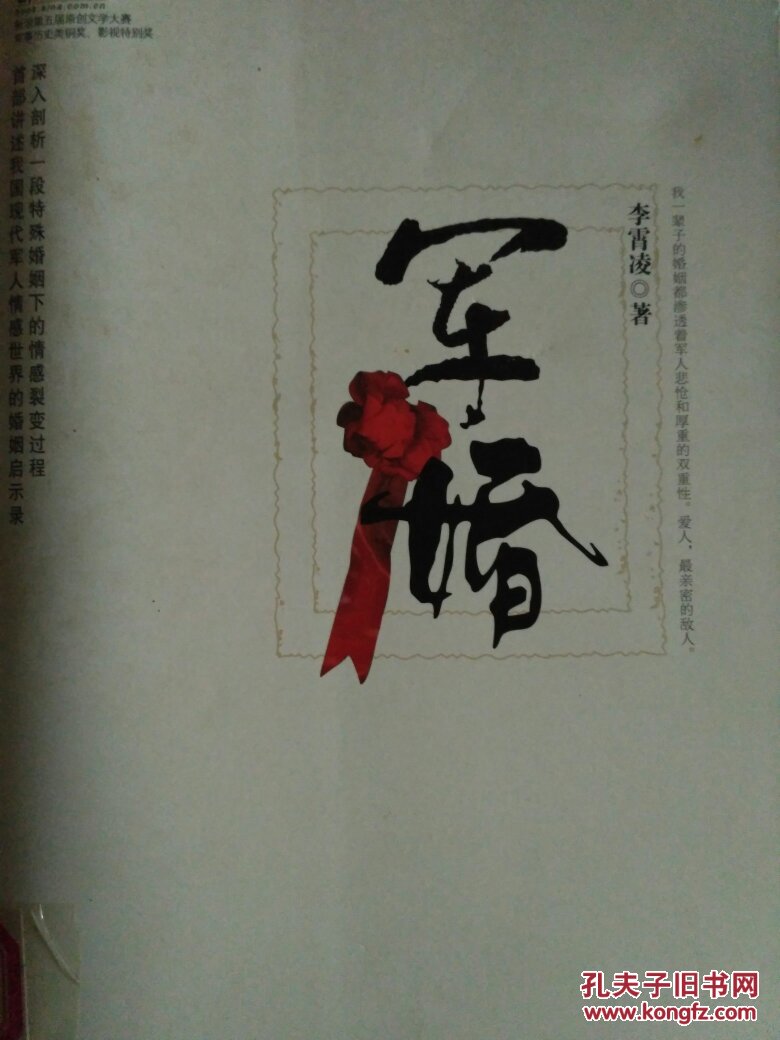 book.sina.com.cn
第五届原创文学大赛
军事历史类铜奖、影视特别奖
深入剖析一段特殊婚姻下的情感裂变过程
首部讲述我国现代军人情感世界的婚姻启示录
我一辈子的婚姻都渗透着军人悲怆和厚重的双重性。爱人，最亲密的敌人。
李霄凌◎著
军婚
孔夫子旧书网
www.kongfz.com